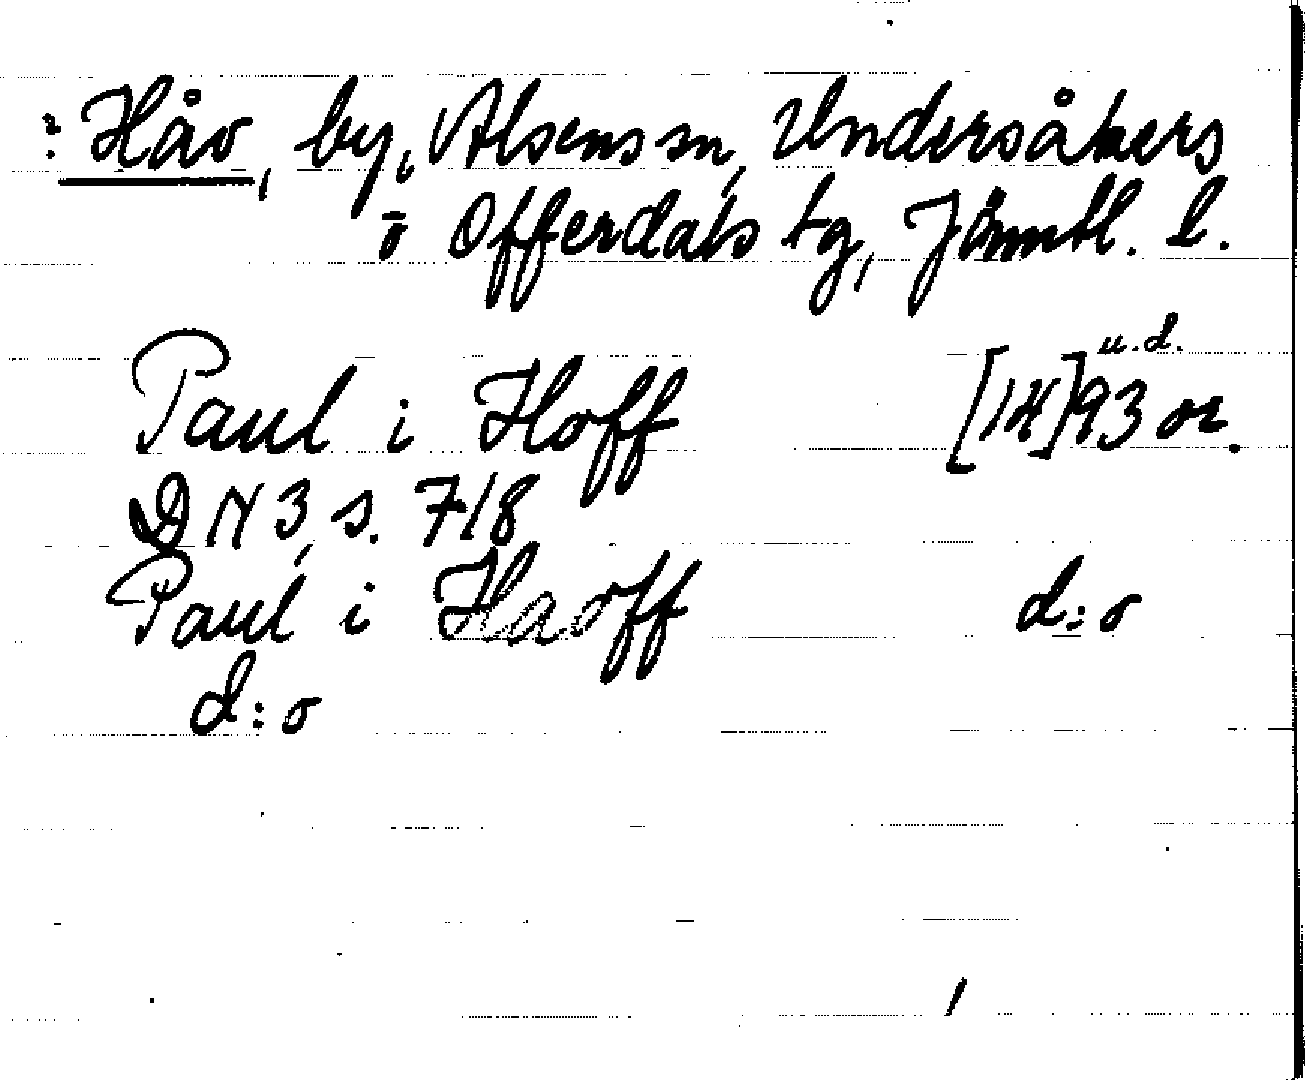 : Håv, by, Alsens sn, Undersåkers
o Offerdals tg, Jämtl. l.
u.d.
Paul i Hoff [14]93 or.
DN 3, s. 718
Paul i Haoff d:o
d:o